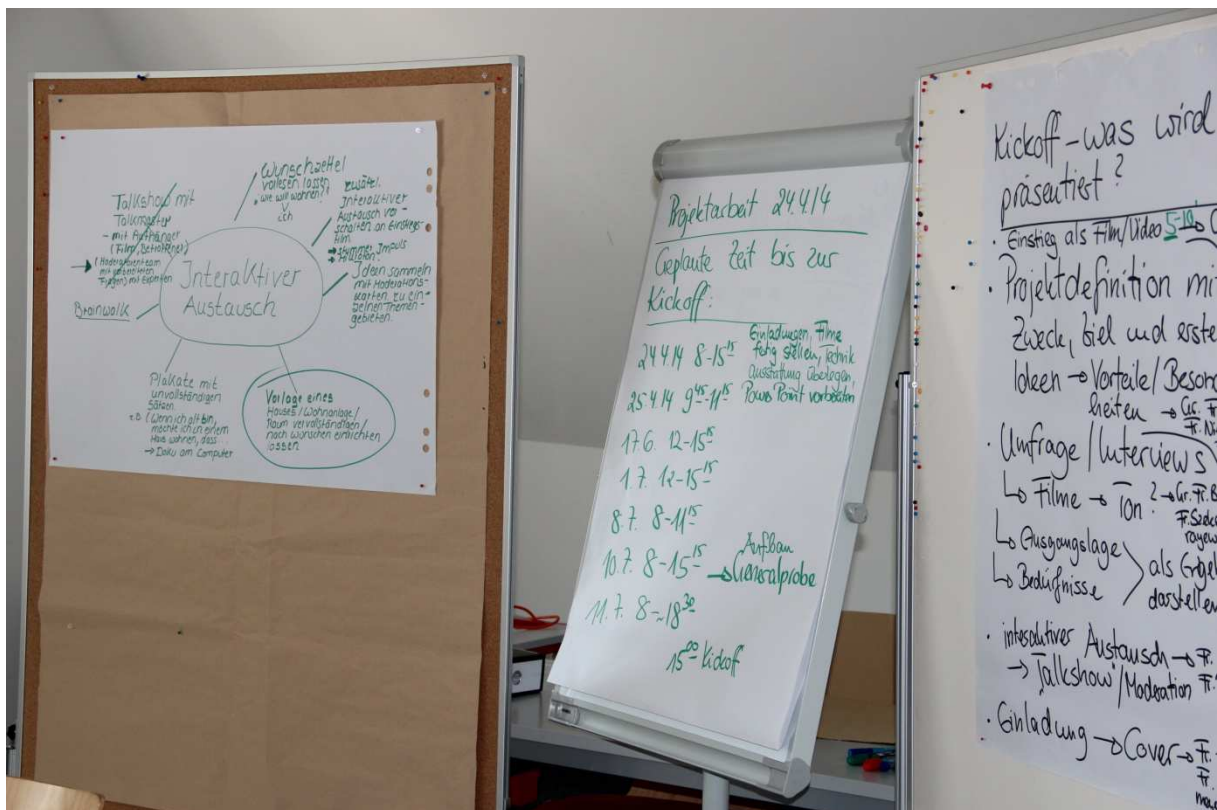 Talkshow mit
Talkmaster
- mit Aufhänger
(Film, Betroffener)
→ (Moderatorenteam
mit vorbereiteten
Fragen) mit Experten
Wunschzettel
vorlesen lassen
"Wie will wohnen?
V
ich
zusätzl.
Interaktiver
Austausch vor-
schalten an Einstiegs-
film.
→ Stummer Impuls
Ideen sammeln
mit Moderations-
karten zu ein-
zelnen Themen-
gebieten.
Interaktiver
Austausch
Brainwalk
Plakate mit
unvollständigen
Sätzen.
z.B. (Wenn ich alt bin,
möchte ich in einem
Haus wohnen, dass...
→ Doku am Computer
Vorlage eines
Hauses/Wohnanlage/
Raum vervollständigen/
nach wünschen einrichten
lassen
Projektarbeit 24.4.14
Geplante Zeit bis zur
Kickoff:
24.4.14 8-15¹⁵
Einladungen, Filme
fertig stellen, Technik
ausstattung überlegen,
25.4.14 9⁴⁵-11¹⁵ Power Point vorbereiten
17.6. 12-15¹⁵
1.7. 12-15¹⁵
8.7. 8-11¹⁵
10.7. 8-15¹⁵ → Aufbau
Generalprobe
11.7. 8-~18³⁰
15⁰⁰ Kickoff
Kickoff - was wird
präsentiert?
· Einstieg als Film/Video 5-10'
· Projektdefinition mit
Zweck, Ziel und erste
Ideen → Vorteile/Beson
heiten → Gr. Fr.
· Umfrage/Interviews
↳ Filme → Ton? → Gr. Fr. B
↳ Ausgangslage
↳ Bedürfnisse
als Gr
darstellen
· interaktiver Austausch → Fr.
→ "Talkshow"/Moderation Fr.
· Einladung → Cover → Fr.
Fr.